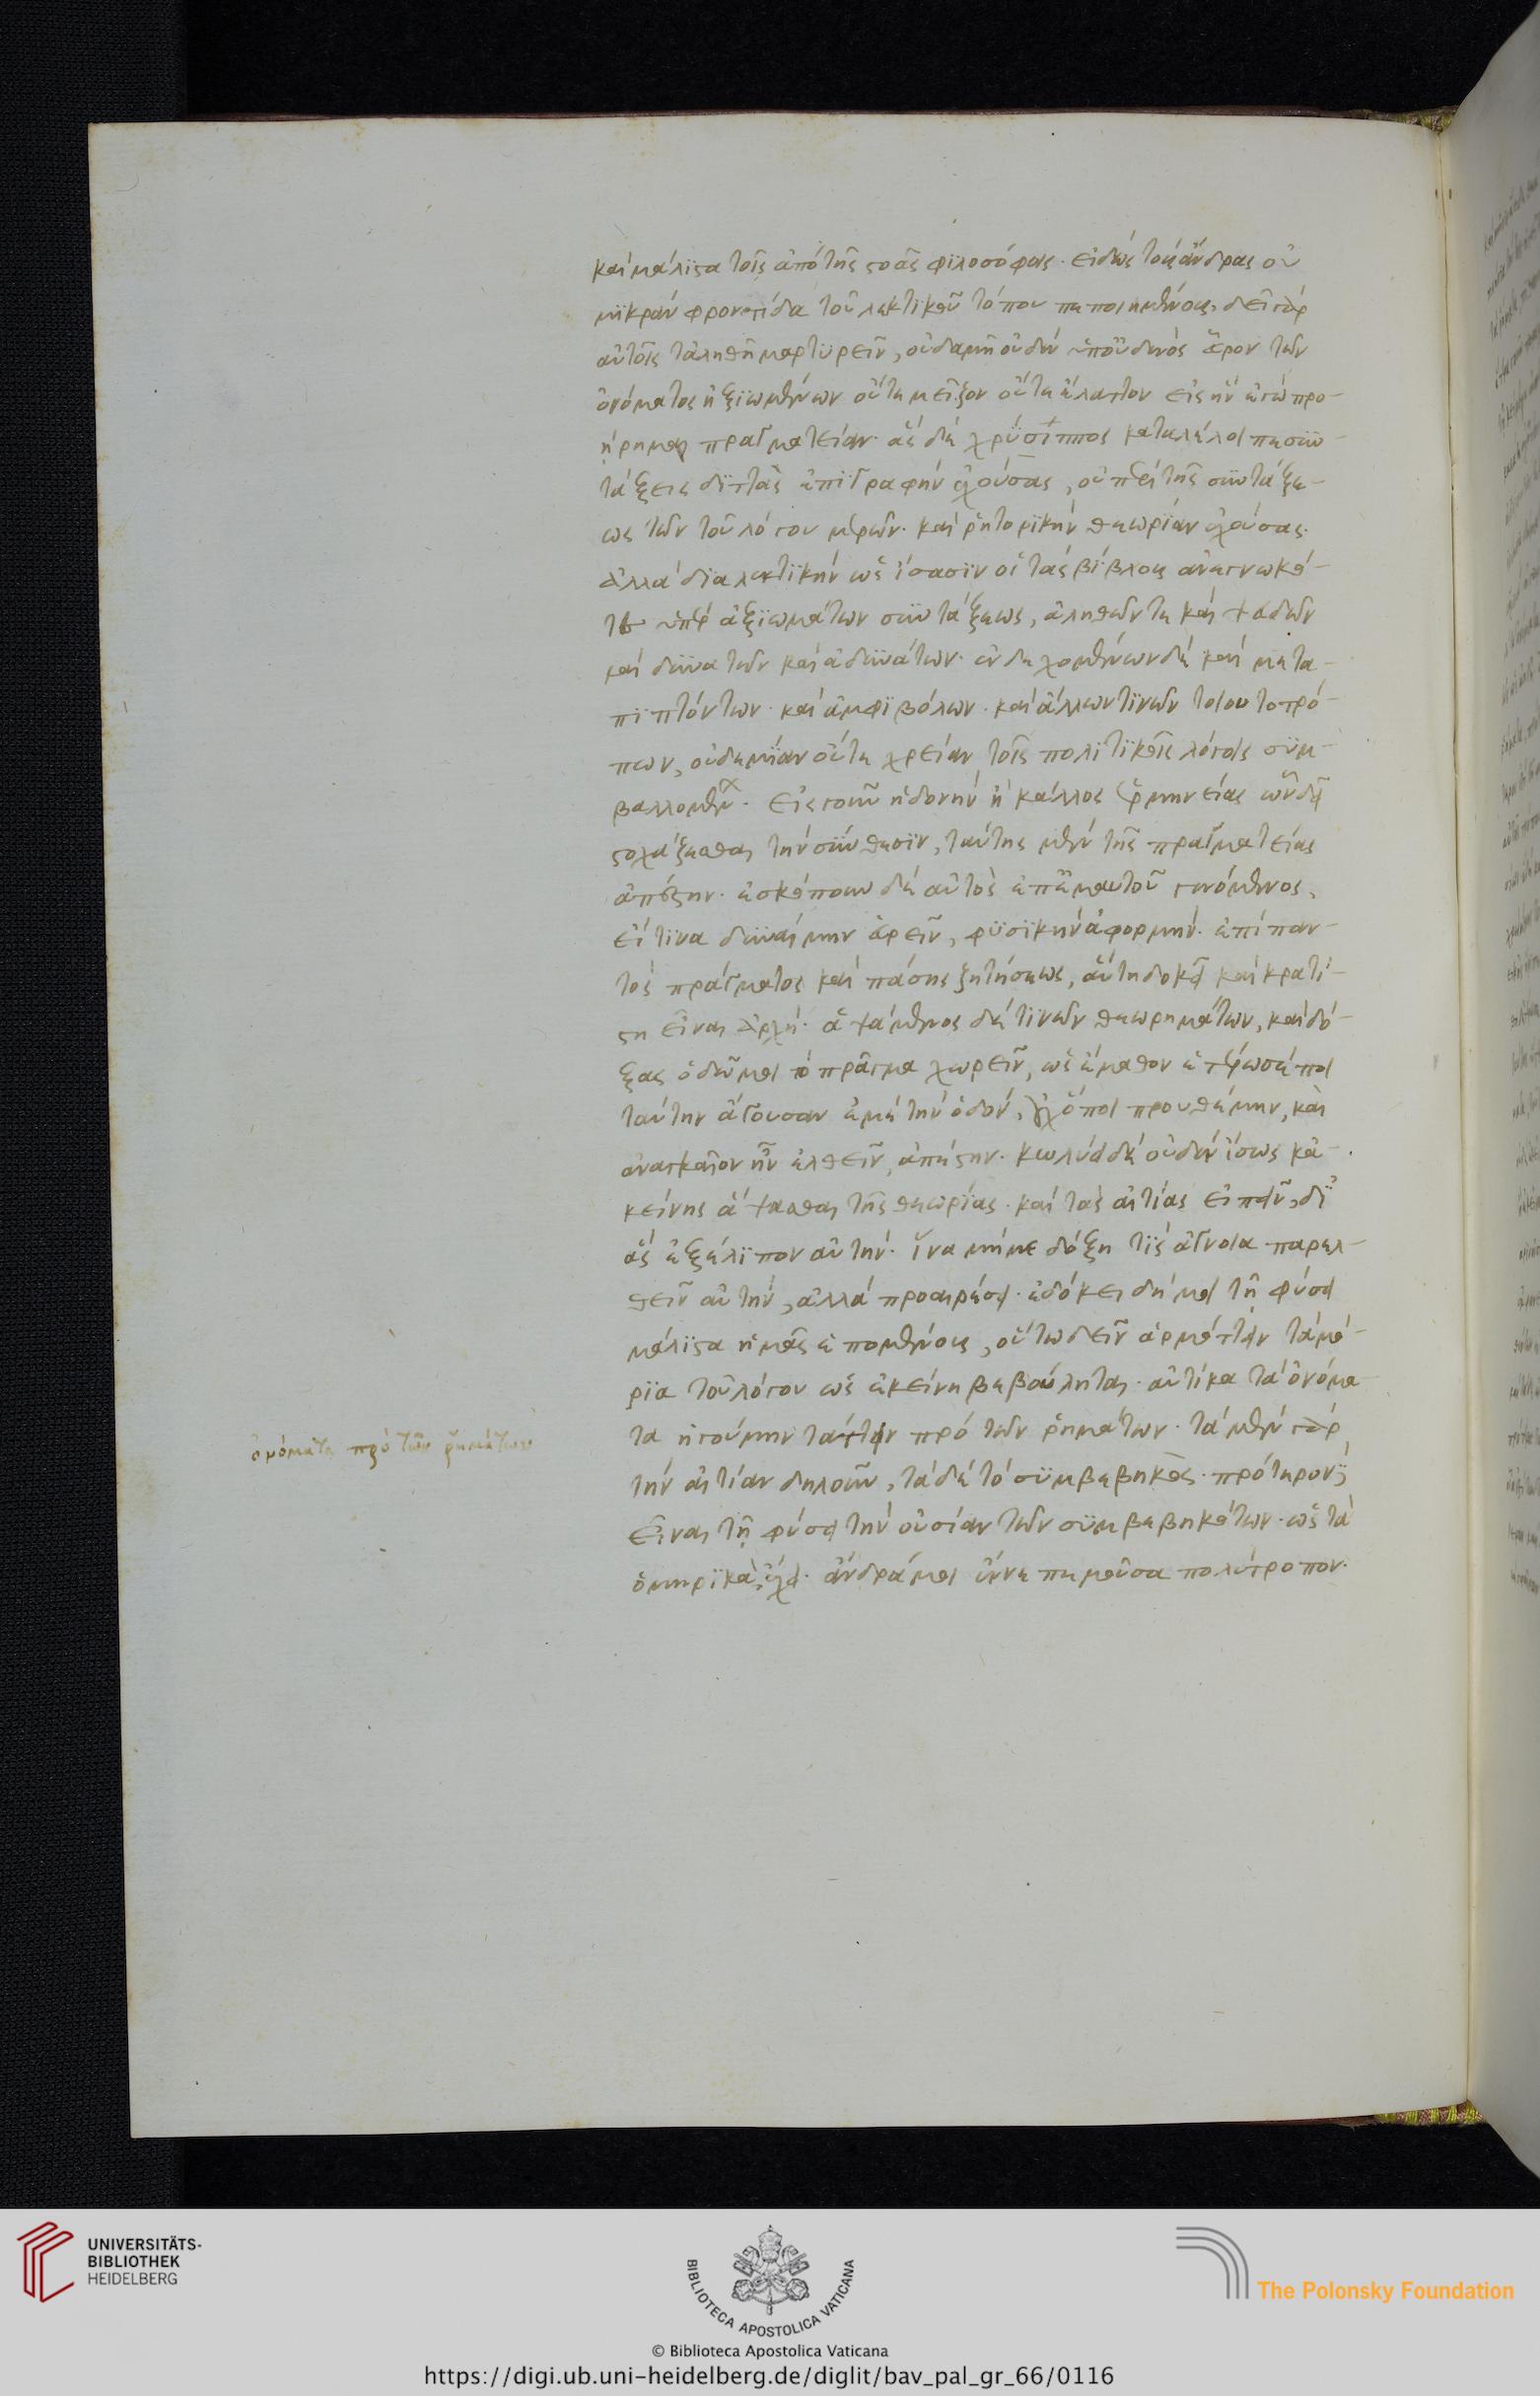 καὶ μάλιστα τοῖς ἀπὸ τῆς στοᾶς φιλοσόφοις. εἰδὼς τοὺς ἄνδρας οὐ
μικρὰν φροντίδα τοῦ λεκτικοῦ τόπου πεποιημένους, δεῖ γὰρ
αὐτοῖς τἀληθῆ μαρτυρεῖν, οὐδαμῆ οὐδὲν ὑπ' οὐδενὸς
ὀνόματος ἠξιωμένων οὔτε μεῖζον οὔτε ἔλαττον εἰς ἣν ἐγὼ προ-
ήρημαι πραγματείαν. ἃς δὲ χρύσιππος καταλέλοιπε συν-
τάξεις διττὰς ἐπιγραφὴν ἐχούσας, οὐ περὶ τῆς συντάξε-
ως τῶν τοῦ λόγου μερῶν. καὶ ῥητορικὴν θεωρίαν ἐχούσας.
ἀλλὰ διαλεκτικὴν ὡς ἴσασιν οἱ τὰς βίβλους ἀνεγνωκό-
τες ὑπὲρ ἀξιωμάτων συντάξεως, ἀληθῶν τε καὶ ψευδῶν
καὶ δυνατῶν καὶ ἀδυνάτων. ἐνδεχομένων δὲ καὶ μετα-
πιπτόντων. καὶ ἀμφιβόλων. καὶ ἄλλων τινῶν τοιουτοτρό-
πων, οὐδεμίαν οὔτε χρείαν τοῖς πολιτικοῖς λόγοις συμ-
βαλλομένων. εἰς γοῦν ἡδονὴν ἢ κάλλος ἑρμηνείας ὧν δεῖ
στοχάζεσθαι τὴν σύνθεσιν, ταύτης μὲν τῆς πραγματείας
ἀπέστην. ἐσκόπουν δὲ αὐτὸς ἐπ' ἐμαυτοῦ γενόμενος,
εἴ τινα δυναίμην εὑρεῖν, φυσικὴν ἀφορμήν. ἐπὶ παν-
τὸς πράγματος καὶ πάσης ζητήσεως, αὕτη δοκεῖ καὶ κρατί-
στη εἶναι ἀρχή. ἁψάμενος δέ τινων θεωρημάτων, καὶ δό-
ξας ὁδῶ μοι τὸ πρᾶγμα χωρεῖν, ὡς ἔμαθον ἑτέρωσέ ποι
ταύτην ἄγουσαν ἐμὲ τὴν ὁδόν, οὐχ ὅποι προυθέμην, καὶ
ἀναγκαῖον ἦν ἐλθεῖν, ἀπέστην. κωλύει δὲ οὐδὲν ἴσως κἀ-
κείνης ἅψασθαι τῆς θεωρίας. καὶ τὰς αἰτίας εἰπεῖν, δι'
ἃς ἐξέλιπον αὐτήν. ἵνα μή με δόξη τὶς ἀγνοία παρελ-
θεῖν αὐτήν, ἀλλὰ προαιρέσει. ἐδόκει δή μοι τῆ φύσει
μάλιστα ἡμᾶς ἑπομένους, οὕτω δεῖν ἁρμόττειν τὰ μό-
ρια τοῦ λόγου ὡς ἐκείνη βεβούληται. αὐτίκα τὰ ὀνόμα-
τα ἡγούμην τάττειν πρὸ τῶν ῥημάτων. τὰ μὲν γὰρ
τὴν αἰτίαν δηλοῦν, τὰ δὲ τὸ συμβεβηκός. πρότερον δ'
εἶναι τῆ φύσει τὴν οὐσίαν τῶν συμβεβηκότων. ὡς τὰ
ὁμηρικὰ ἔχει. ἄνδρά μοι ἔννεπε μοῦσα πολύτροπον.
ὀνόματα πρὸ τῶν ῥημάτων
UNIVERSITÄTS-
BIBLIOTHEK
HEIDELBERG
BIBLIOTECA APOSTOLICA VATICANA
The Polonsky Foundation
© Biblioteca Apostolica Vaticana
https://digi.ub.uni-heidelberg.de/diglit/bav_pal_gr_66/0116